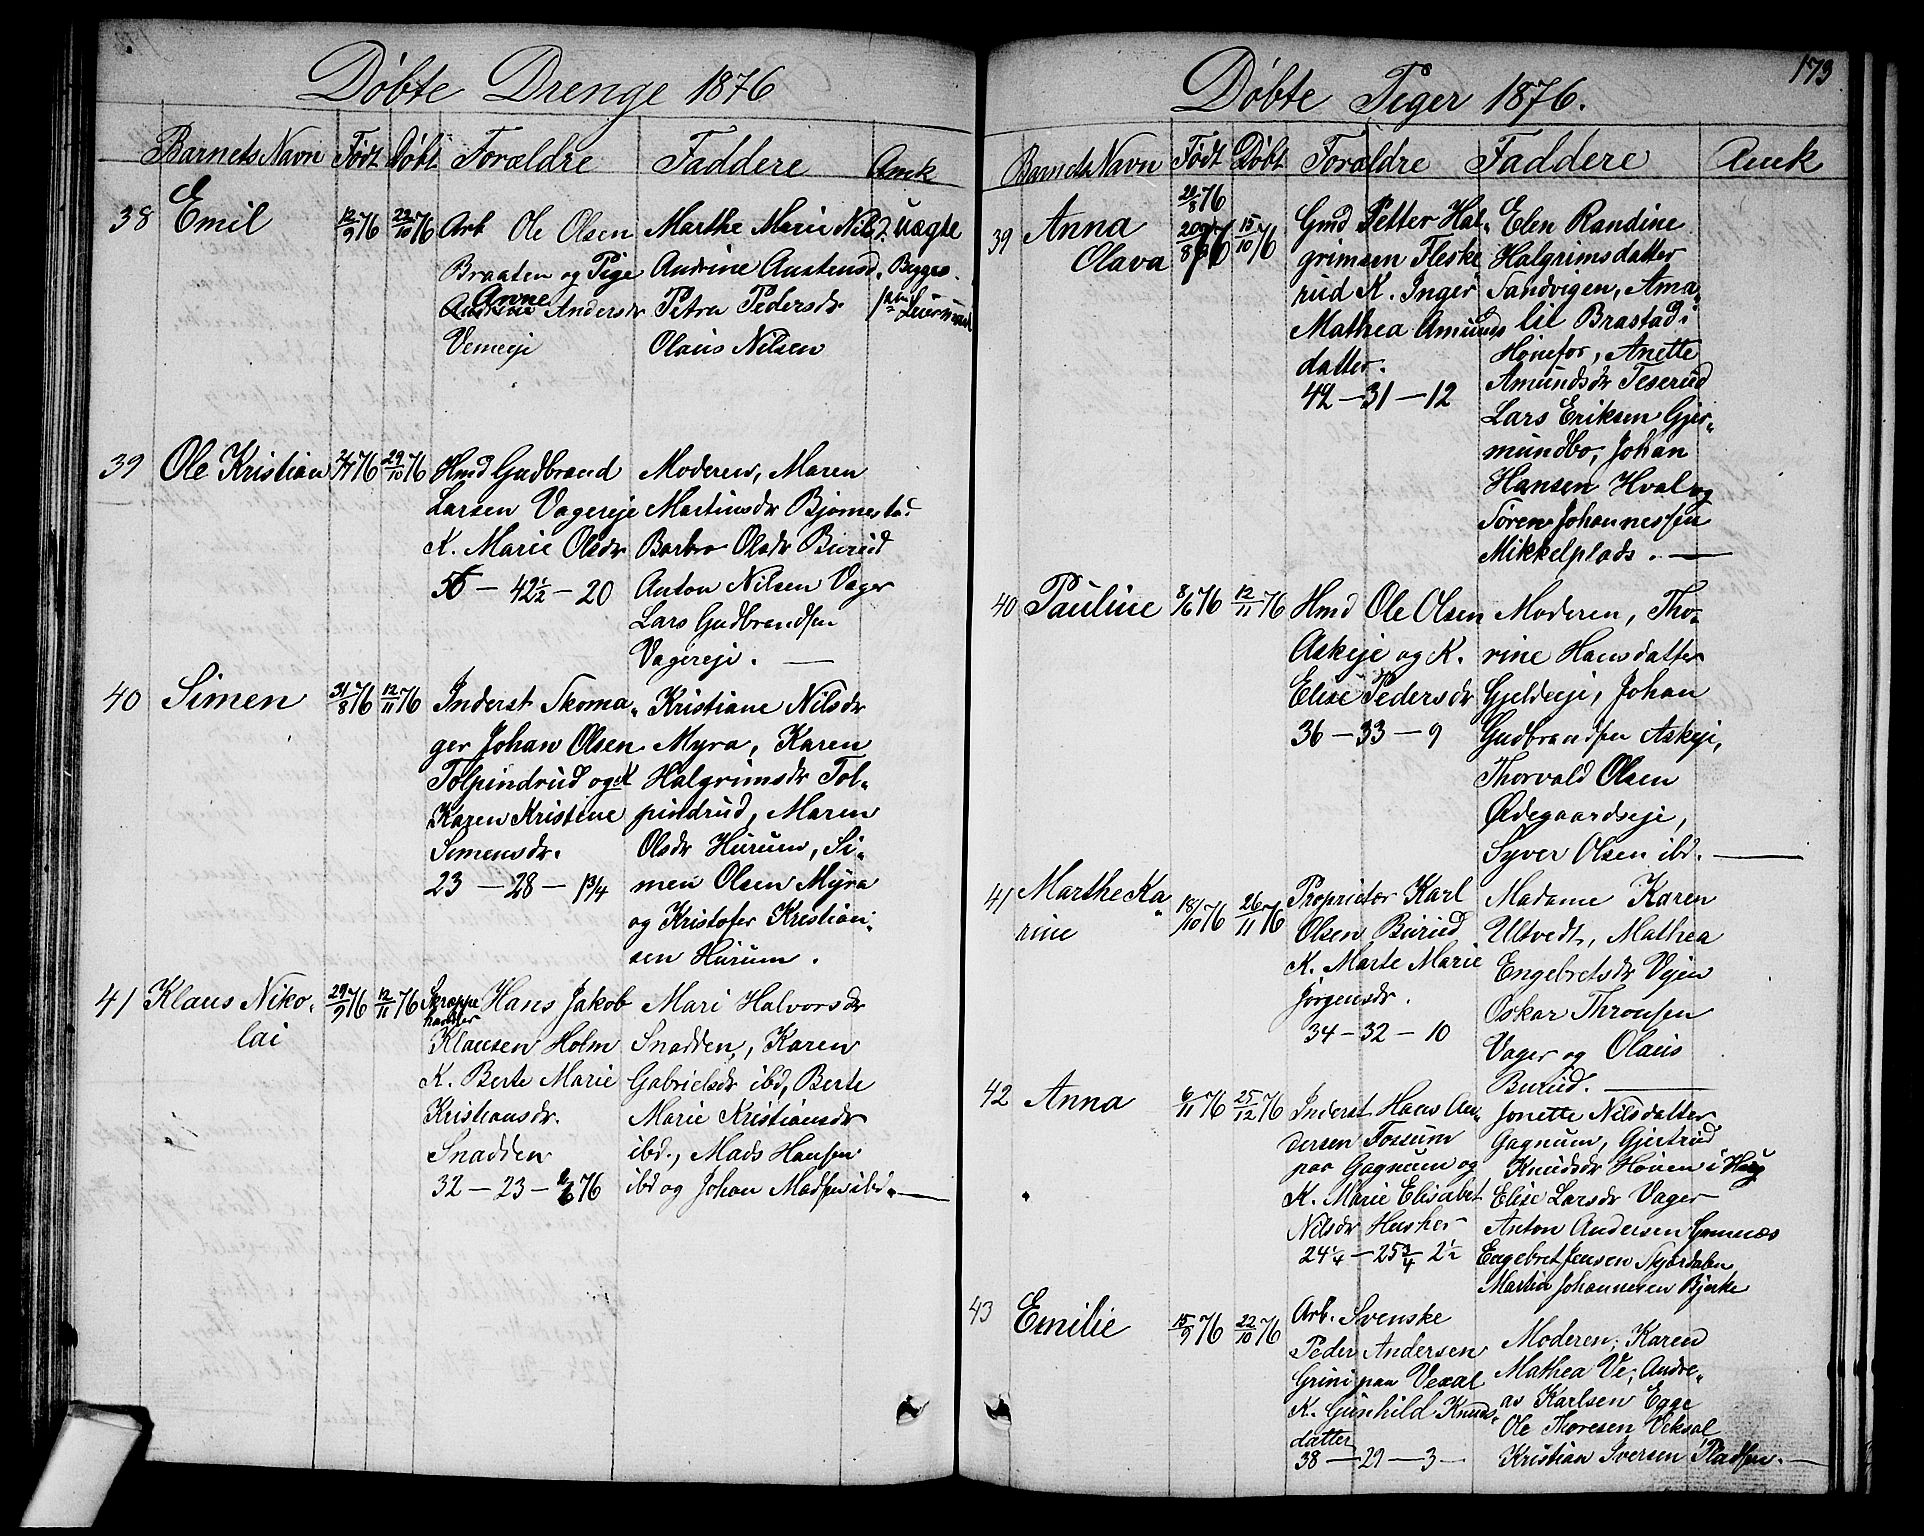 Døbte Drenge 1876
Barnets Navn Født Døbt Forældre Faddere Amk
38 Emil 12/9 76 22/10 76
Arb Ole Olsen
Braaten og Pige
Anne Andersdr
Vemeje
Marthe Marie Nilsd.
Andrine Austensd.
Petra Pedersdr
Olaus Nilsen
uægte
39 Ole Kristian 76 29/10 76
Hmd Gudbrand
Larsen Vagereje
K. Marie Olsdr
56 — 42½ — 20
Moderen, Maren
Martinsdr Bjørnesta.
Barbro Olsdr Burud
Anton Nilsen Vager
Lars Gudbrandsen
Vagereje. —
40 Simen 31/8 76 12/11 76
Inderst Skoma„
ger Johan Olsen
Tolpindrud og K
Karen Kristine
Simensdr.
23 — 28 — 1¾
Kristiane Nilsdr
Myra, Karen
Halgrimsdr Tol„
pindrud, Maren
Olsdr Hurum, Si„
men Olsen Myra
og Kristofer Kristian„
sen Hurum.
41 Klaus Niko„
lai
29/9 76 12/11 76
Hans Jakob
Klausen Holm
K. Berte Marie
Kristiansdr.
Snadden
32 — 23 — 76
Mari Halvorsdr
Snadden, Karen
Gabrielsdr ibd, Berte
Marie Kristiansdr
ibd., Mads Hansen
ibd og Johan Madsen ibd. —
173
Døbte Piger 1876.
Barnets Navn Født Døbt Forældre Faddere Amk
39 Anna
Olava
20/8 76
20/8 76 15/10 76
Gmd Petter Hal„
grimsen Fleske
rud K. Inger
Mathea Amunds
datter.
42 — 31 — 12
Elen Randine
Halgrimsdatter
Sandvigen, Ama„
lie Brastad i
Hønefos, Anette
Amundsdr Teserud
Lars Eriksen Gjer„
mundbo, Johan
Hansen Hval og
Søren Johannessen
Mikkelplads. —
40 Pauline 8/6 76 12/11 76
Hmd Ole Olsen
Askeje og K.
Elise Pedersdr
36 — 33 — 9
Moderen, Tho„
rine Hansdatter
Gjeldeje, Johan
Gudbrandsen Askeje,
Thorvald Olsen
Ødegaardseje,
Syver Olsen ibd. —
41 Marthe Ka„
rine
18/10 76 26/11 76
Proprietær Karl
Olsen Burud
K. Marte Marie
Jørgensdr.
34 — 32 — 10
Madame Karen
Ultvedt, Mathea
Engebretsdr Vejen
Oskar Thronsen
Vager og Olaus
Burud. —
42 Anna 6/11 76 25/12 76
Inderst Hans An„
dersen Fossum
paa Gagnum og
K. Marie Elisabet
Nilsdr
24¼ — 25¾ 2½
Jonette Nilsdatter
Gagnum, Gjertrud
Knudsdr Houen i Haug
Elise Larsdr Vager
Anton Andersen
Engebret Jensen
Martin Johannesen Bjerke
43 Emilie 15/9 76 22/10 76
Arb. Svenske
Peder Andersen
Grini paa Vexal
K. Gunhild Knuds„
datter
38 — 29 — 3 —
Moderen, Karen
Mathea Ve, Andre„
as Karlsen Egge
Ole Thoresen Veksal
Kristian Iversen Pladsen. —